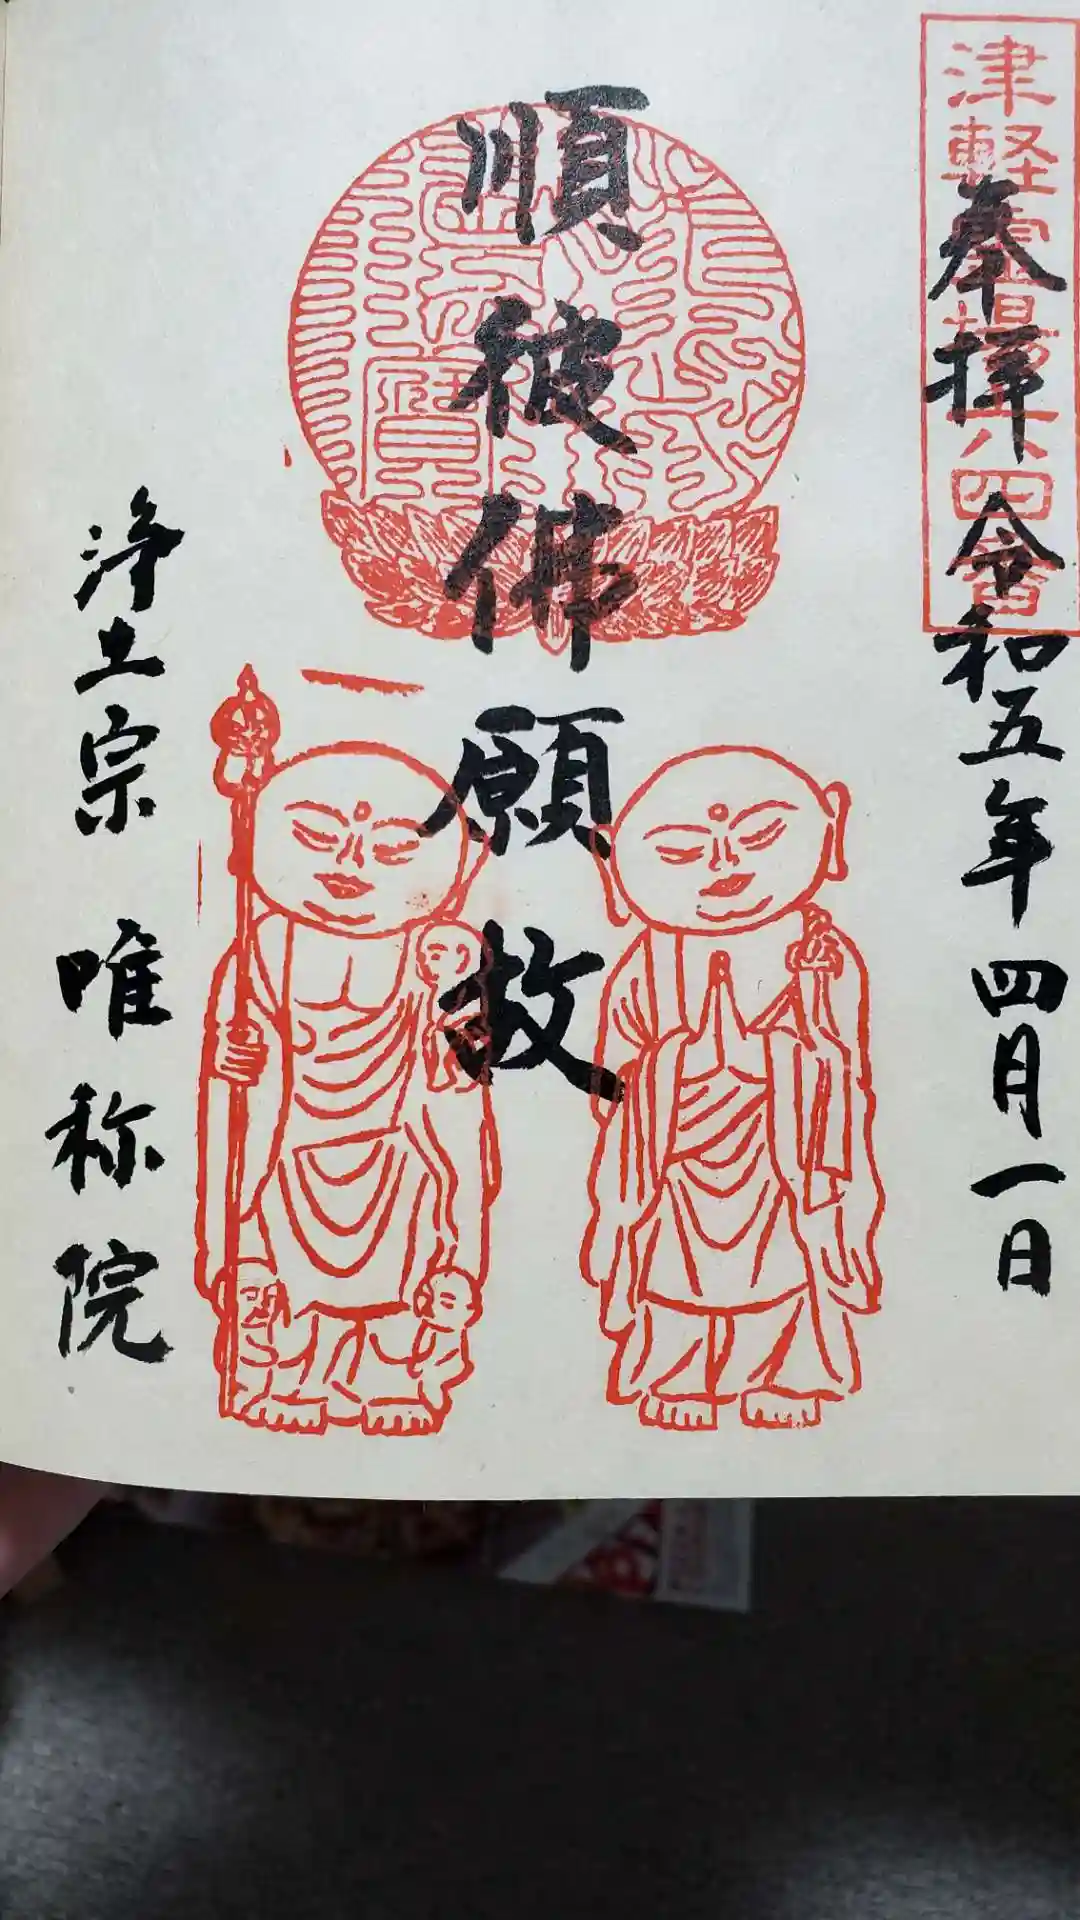 津軽霊場八四番
奉拝 令和五年四月一日
順彼佛願故
浄土宗 唯称院